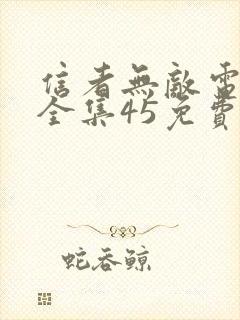 信者無敵電
全集45免費
蛇吞鯨